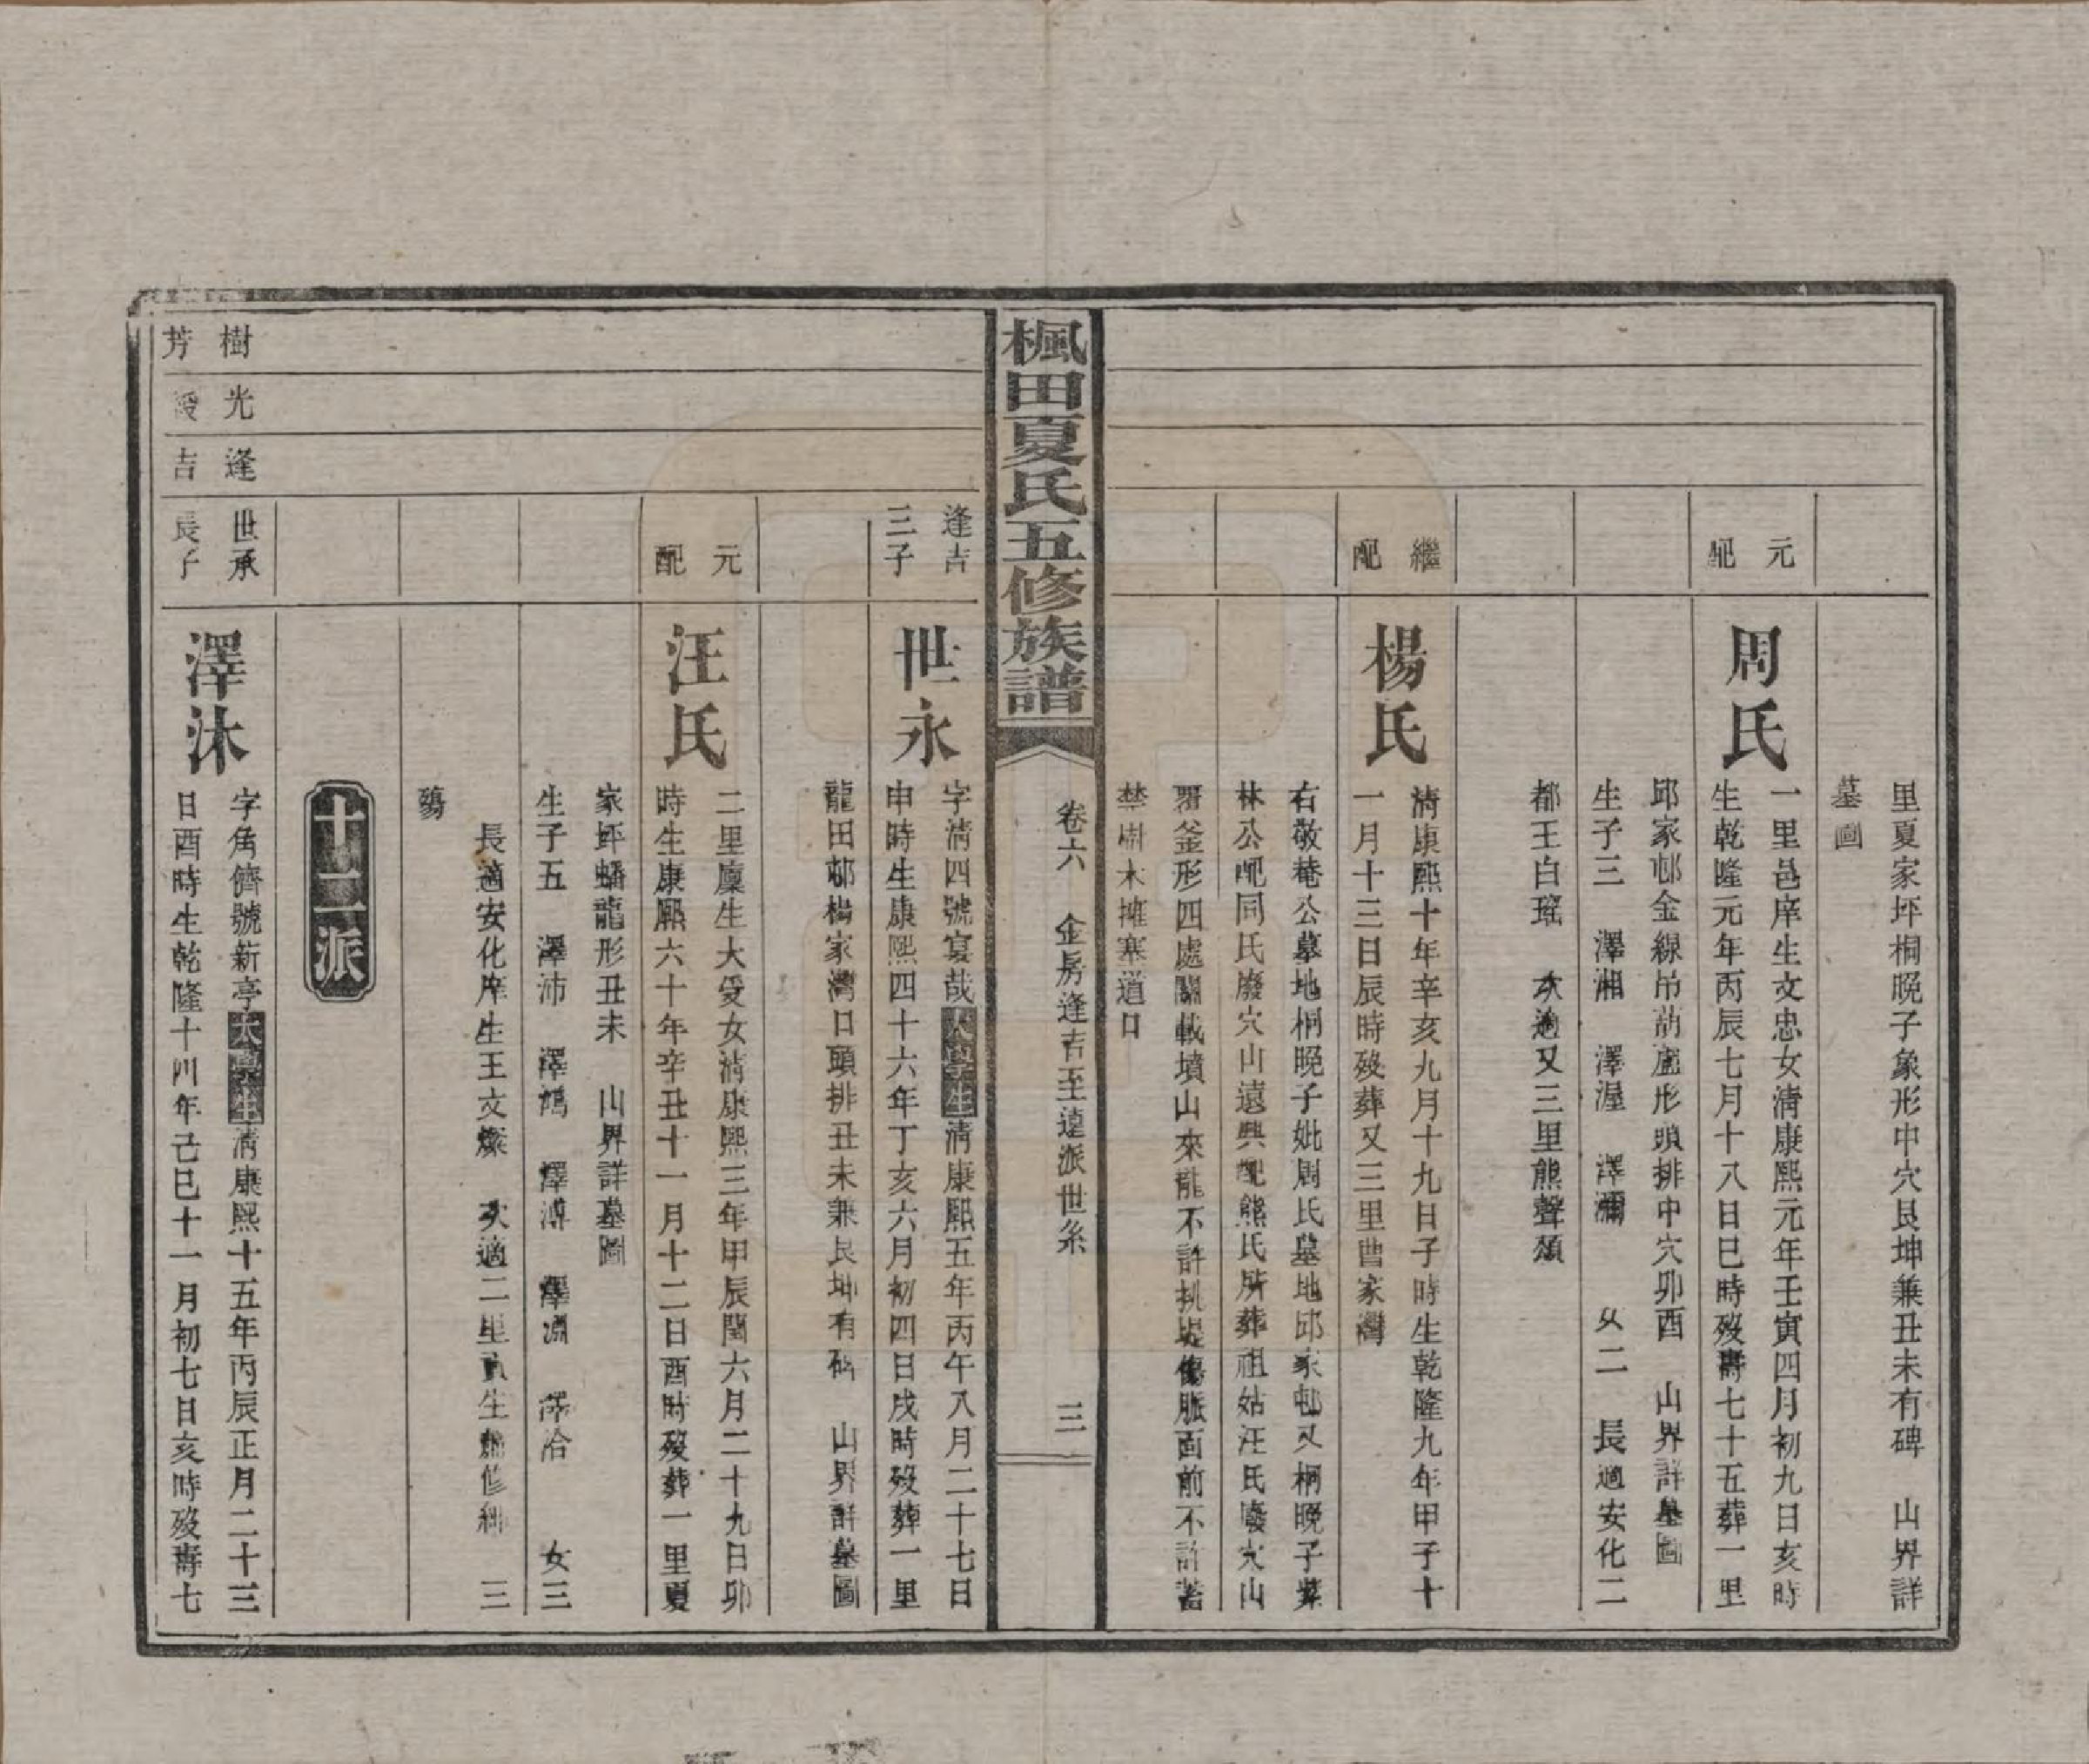 里夏家坪桐晚子象形中穴艮坤兼丑未有碑　山界詳
墓圖
元配
周氏
一里邑庠生文忠女清康熙元年壬寅四月初九日亥時
生乾隆元年丙辰七月十八日巳時歿壽七十五葬一里
邱家邨金線吊葫蘆形頭排中穴卯酉　山界詳墓圖
生子三　澤湘　澤渥　澤瀰　　女二　長適安化二
都王白瑤　次適又三里熊聲頌
繼配
楊氏
清康熙十年辛亥九月十九日子時生乾隆九年甲子十
一月十三日辰時歿葬又三里曹家灣
右敬菴公墓地桐晚子妣周氏墓地邱家邨又桐晚子葉
林公配同氏廢穴山遠興配熊氏所葬祖姑汪氏廢穴山
覆釜形四處關載墳山來龍不許挑堤傷脈面前不許蓄
禁樹木擁塞道口
楓田夏氏五修族譜
卷六　金房逢吉至遠派世系
三
逢吉三子
世永
字清四號宴哉太學生清康熙五年丙午八月二十七日
申時生康熙四十六年丁亥六月初四日戌時歿葬一里
龍田邨楊家灣口頭排丑未兼艮坤有碑　山界詳墓圖
元配
汪氏
二里廩生大受女清康熙三年甲辰閏六月二十九日卯
時生康熙六十年辛丑十一月十二日酉時歿葬一里夏
家坪蟠龍形丑未　山界詳墓圖
生子五　澤沛　澤鴻　澤溥　澤淵　澤洽　　女三
長適安化庠生王文燦　次適二里貢生熊修　三
殤
十二派
樹芳
光
逢吉
世承長子
澤沐
字角儕號新亭太學生清康熙十五年丙辰正月二十三
日酉時生乾隆十四年己巳十一月初七日亥時歿壽七